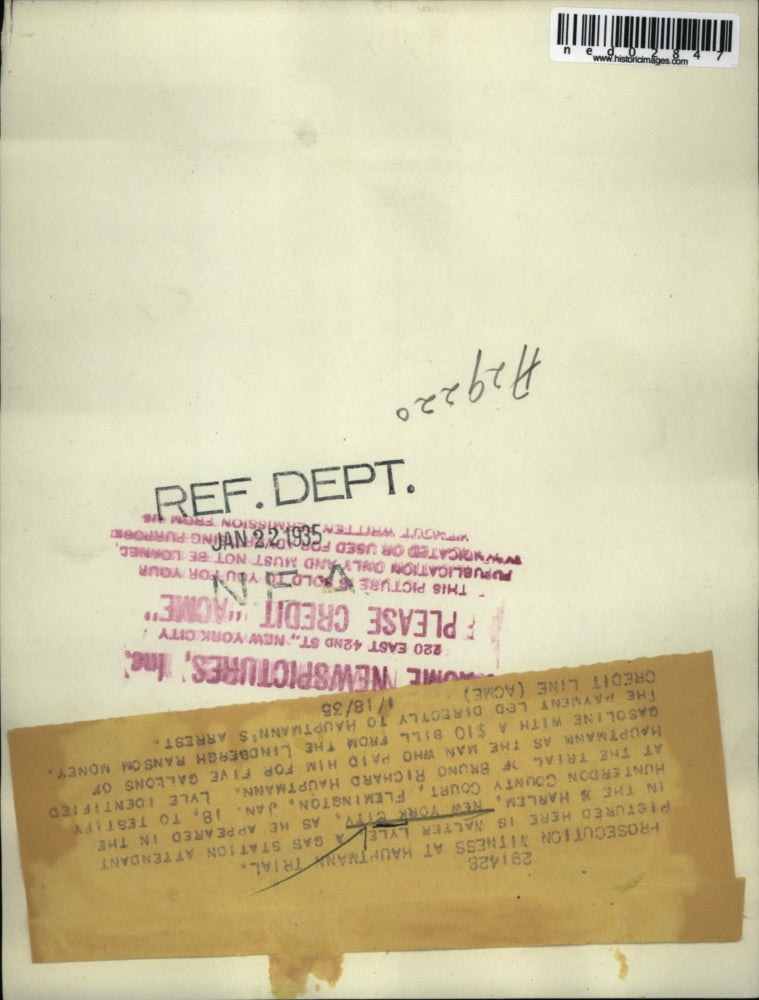 ned02847
www.historicimages.com
A29220
REF. DEPT.
JAN 22 1935
NEA
ACME NEWSPICTURES, Inc.
220 EAST 42ND ST., NEW YORK CITY
PLEASE CREDIT "ACME"
THIS PICTURE IS SOLD TO YOU FOR YOUR
PUBLICATION ONLY AND MUST NOT BE LOANED,
SYNDICATED OR USED FOR ADVERTISING PURPOSE
WITHOUT WRITTEN PERMISSION FROM US
291428
PROSECUTION WITNESS AT HAUPTMANN TRIAL.
PICTURED HERE IS WALTER LYLE, A GAS STATION ATTENDANT
IN THE & HARLEM, NEW YORK CITY, AS HE APPEARED IN THE
HUNTERDON COUNTY COURT, FLEMINGTON, JAN. 18, TO TESTIFY
AT THE TRIAL OF BRUNO RICHARD HAUPTMANN. LYLE IDENTIFIED
HAUPTMANN AS THE MAN WHO PAID HIM FOR FIVE GALLONS OF
GASOLINE WITH A $10 BILL FROM THE LINDBERGH RANSOM MONEY.
THE PAYMENT LED DIRECTLY TO HAUPTMANN'S ARREST.
CREDIT LINE (ACME) 1/18/35